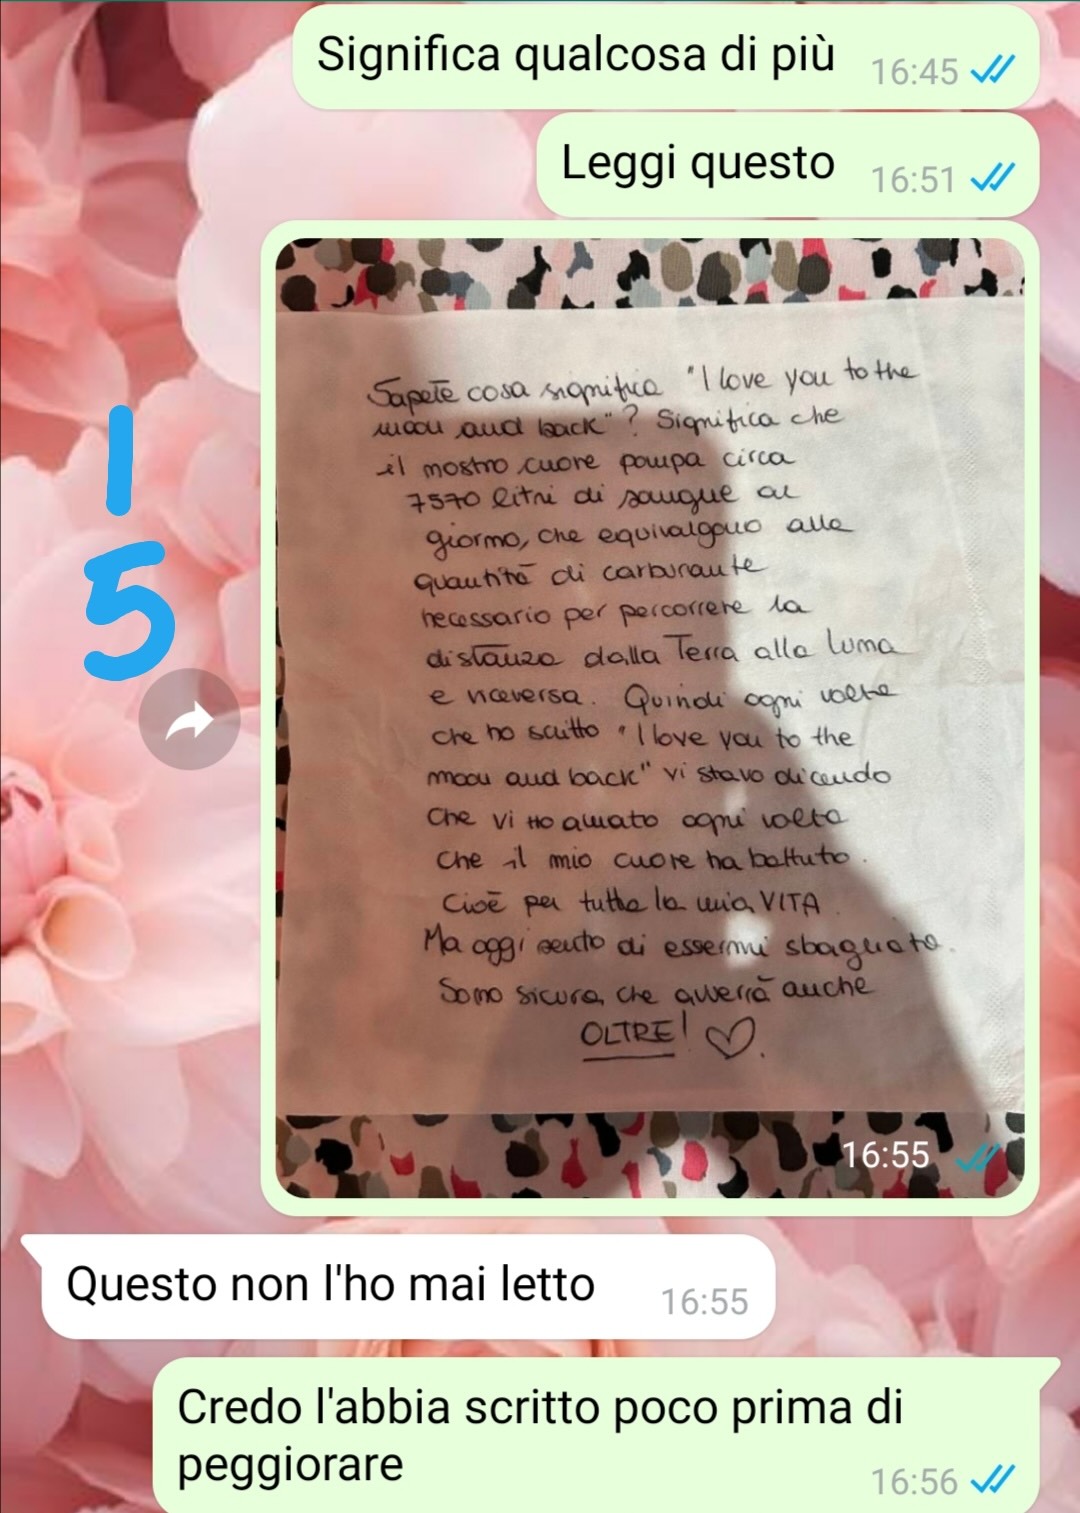 Significa qualcosa di più 16:45
Leggi questo 16:51
Sapete cosa significa "I love you to the
moon and back"? Significa che
il nostro cuore pompa circa
7570 litri di sangue al
giorno, che equivalgono alla
quantità di carburante
necessario per percorrere la
distanza dalla Terra alla luna
e viceversa. Quindi ogni volta
che ho scritto "I love you to the
moon and back" vi stavo dicendo
che vi ho amato ogni volta
che il mio cuore ha battuto.
Cioè per tutta la mia VITA
Ma oggi sento di essermi sbagliata.
Sono sicura, che avverrà anche
OLTRE!
16:55
1
5
Questo non l'ho mai letto 16:55
Credo l'abbia scritto poco prima di
peggiorare 16:56